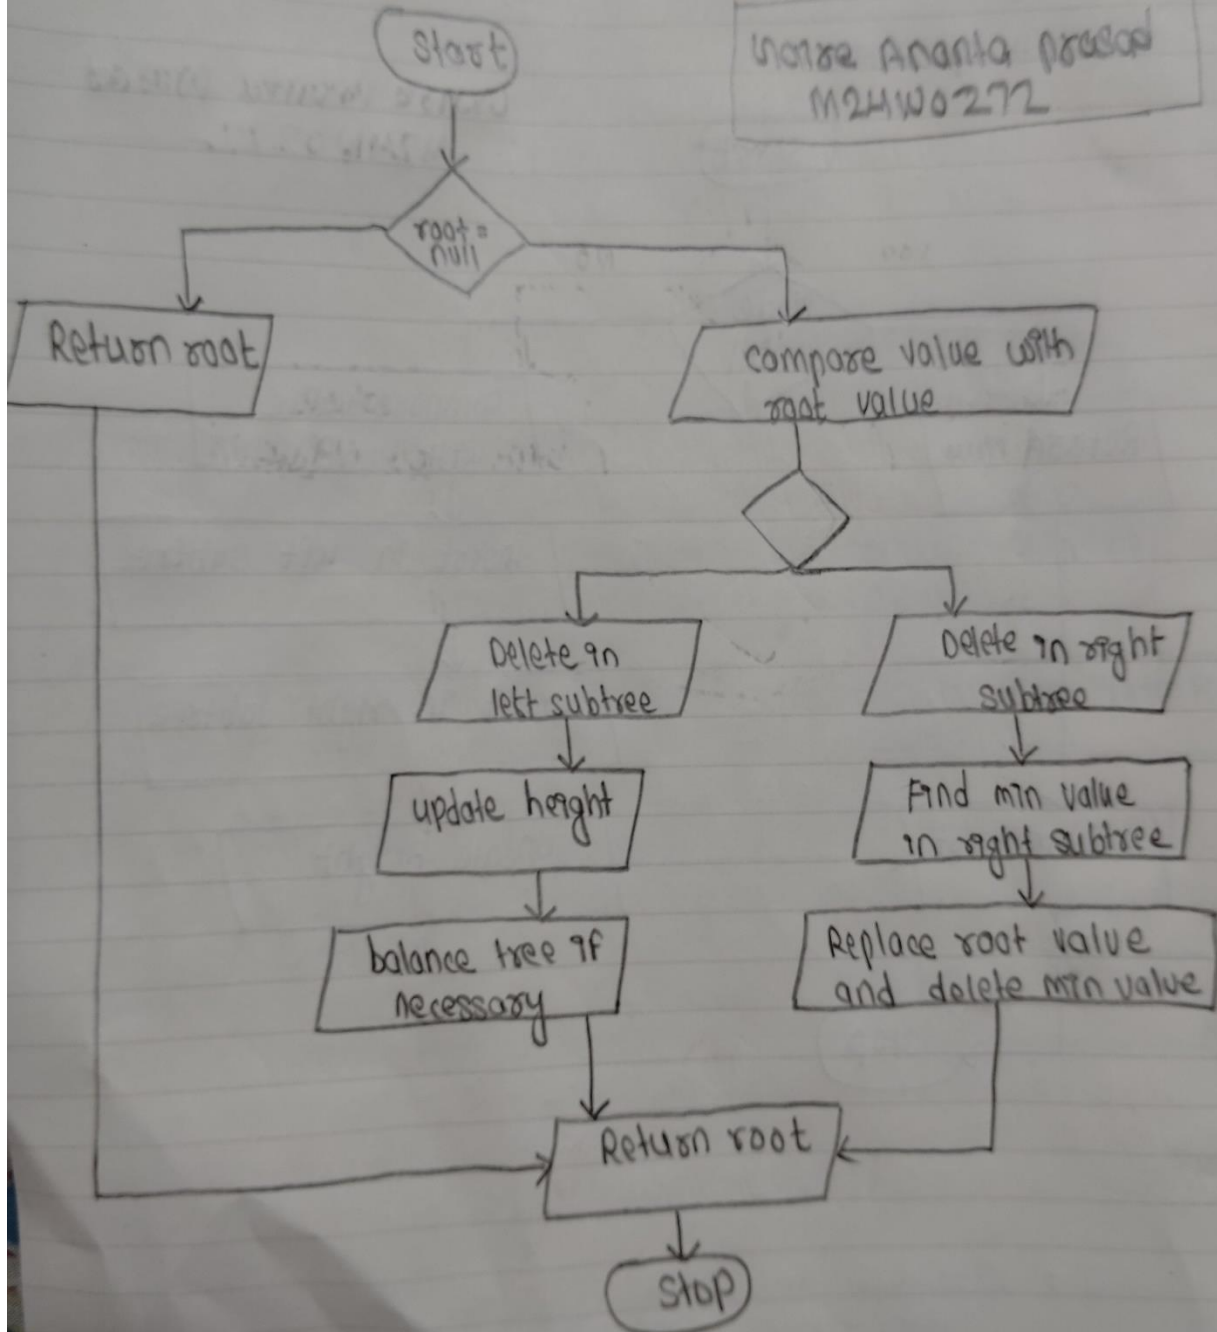 Start
Ananta Prasad
M24W0272
root =
null
Return root
compare value with
root value
Delete in
left subtree
Delete in right
subtree
update height
Find min value
in right subtree
balance tree if
necessary
Replace root value
and delete min value
Return root
Stop